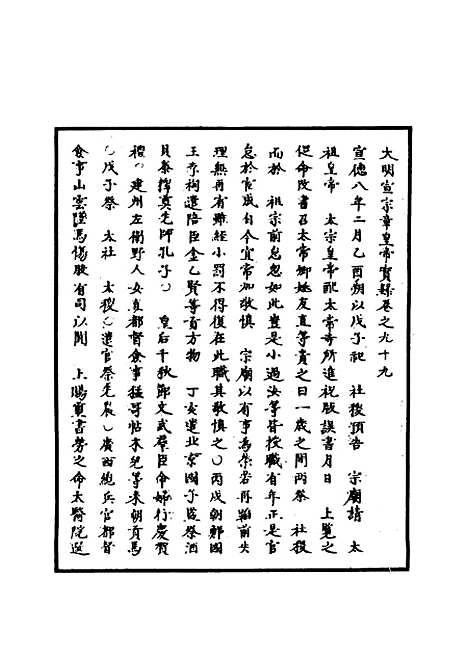 大明宣宗章皇帝實錄卷之九十九
宣德八年二月乙酉朔以戊子祀　社稷預告　宗廟請　太
祖皇帝　太宗皇帝配太常寺所進祝版誤書月日　上覽之
促命改書召太常卿姚友直等責之曰一歲之間兩祭　社稷
而於　祖宗前怠忽如此豈是小過汝等皆授職有年正是官
怠於宦成自今宜常加敬慎　宗廟以有事為榮若再蹈前失
理無再宥雖經小罰不得復在此職其敬慎之○丙戌朝鮮國
王李裪遣陪臣金乙賢等貢方物　丁亥遣北京國子監祭酒
貝泰釋奠先師孔子○　皇后千秋節文武群臣命婦行慶賀
禮○建州左衛野人女真都督僉事猛哥帖木兒等來朝貢馬
○戊子祭　太社　太稷○遣官祭先農○廣西總兵官都督
僉事山雲墜馬傷股有司以聞　上賜璽書勞之命太醫院選